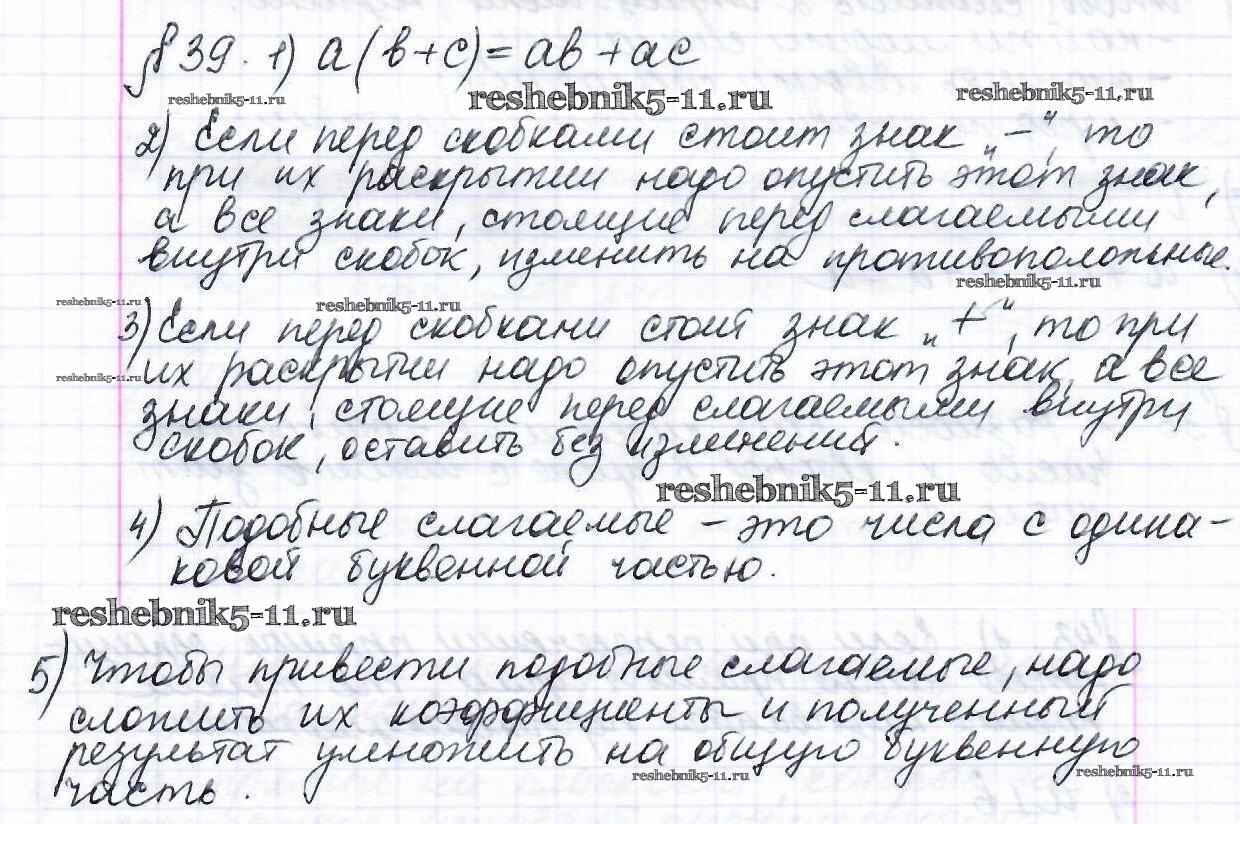 § 39. 1) a(b+c)=ab+ac
reshebnik5-11.ru
reshebnik5-11.ru
reshebnik5-11.ru
2) Если перед скобками стоит знак „–“, то
при их раскрытии надо опустить этот знак,
а все знаки, стоящие перед слагаемыми
внутри скобок, изменить на противоположные.
reshebnik5-11.ru
reshebnik5-11.ru
reshebnik5-11.ru
3) Если перед скобками стоит знак „+“, то при
их раскрытии надо опустить этот знак, а все
reshebnik5-11.ru
знаки, стоящие перед слагаемыми внутри
скобок, оставить без изменений.
reshebnik5-11.ru
4) Подобные слагаемые – это числа с одина-
ковой буквенной частью.
reshebnik5-11.ru
5) Чтобы привести подобные слагаемые, надо
сложить их коэффициенты и полученный
результат умножить на общую буквенную
reshebnik5-11.ru
reshebnik5-11.ru
часть.